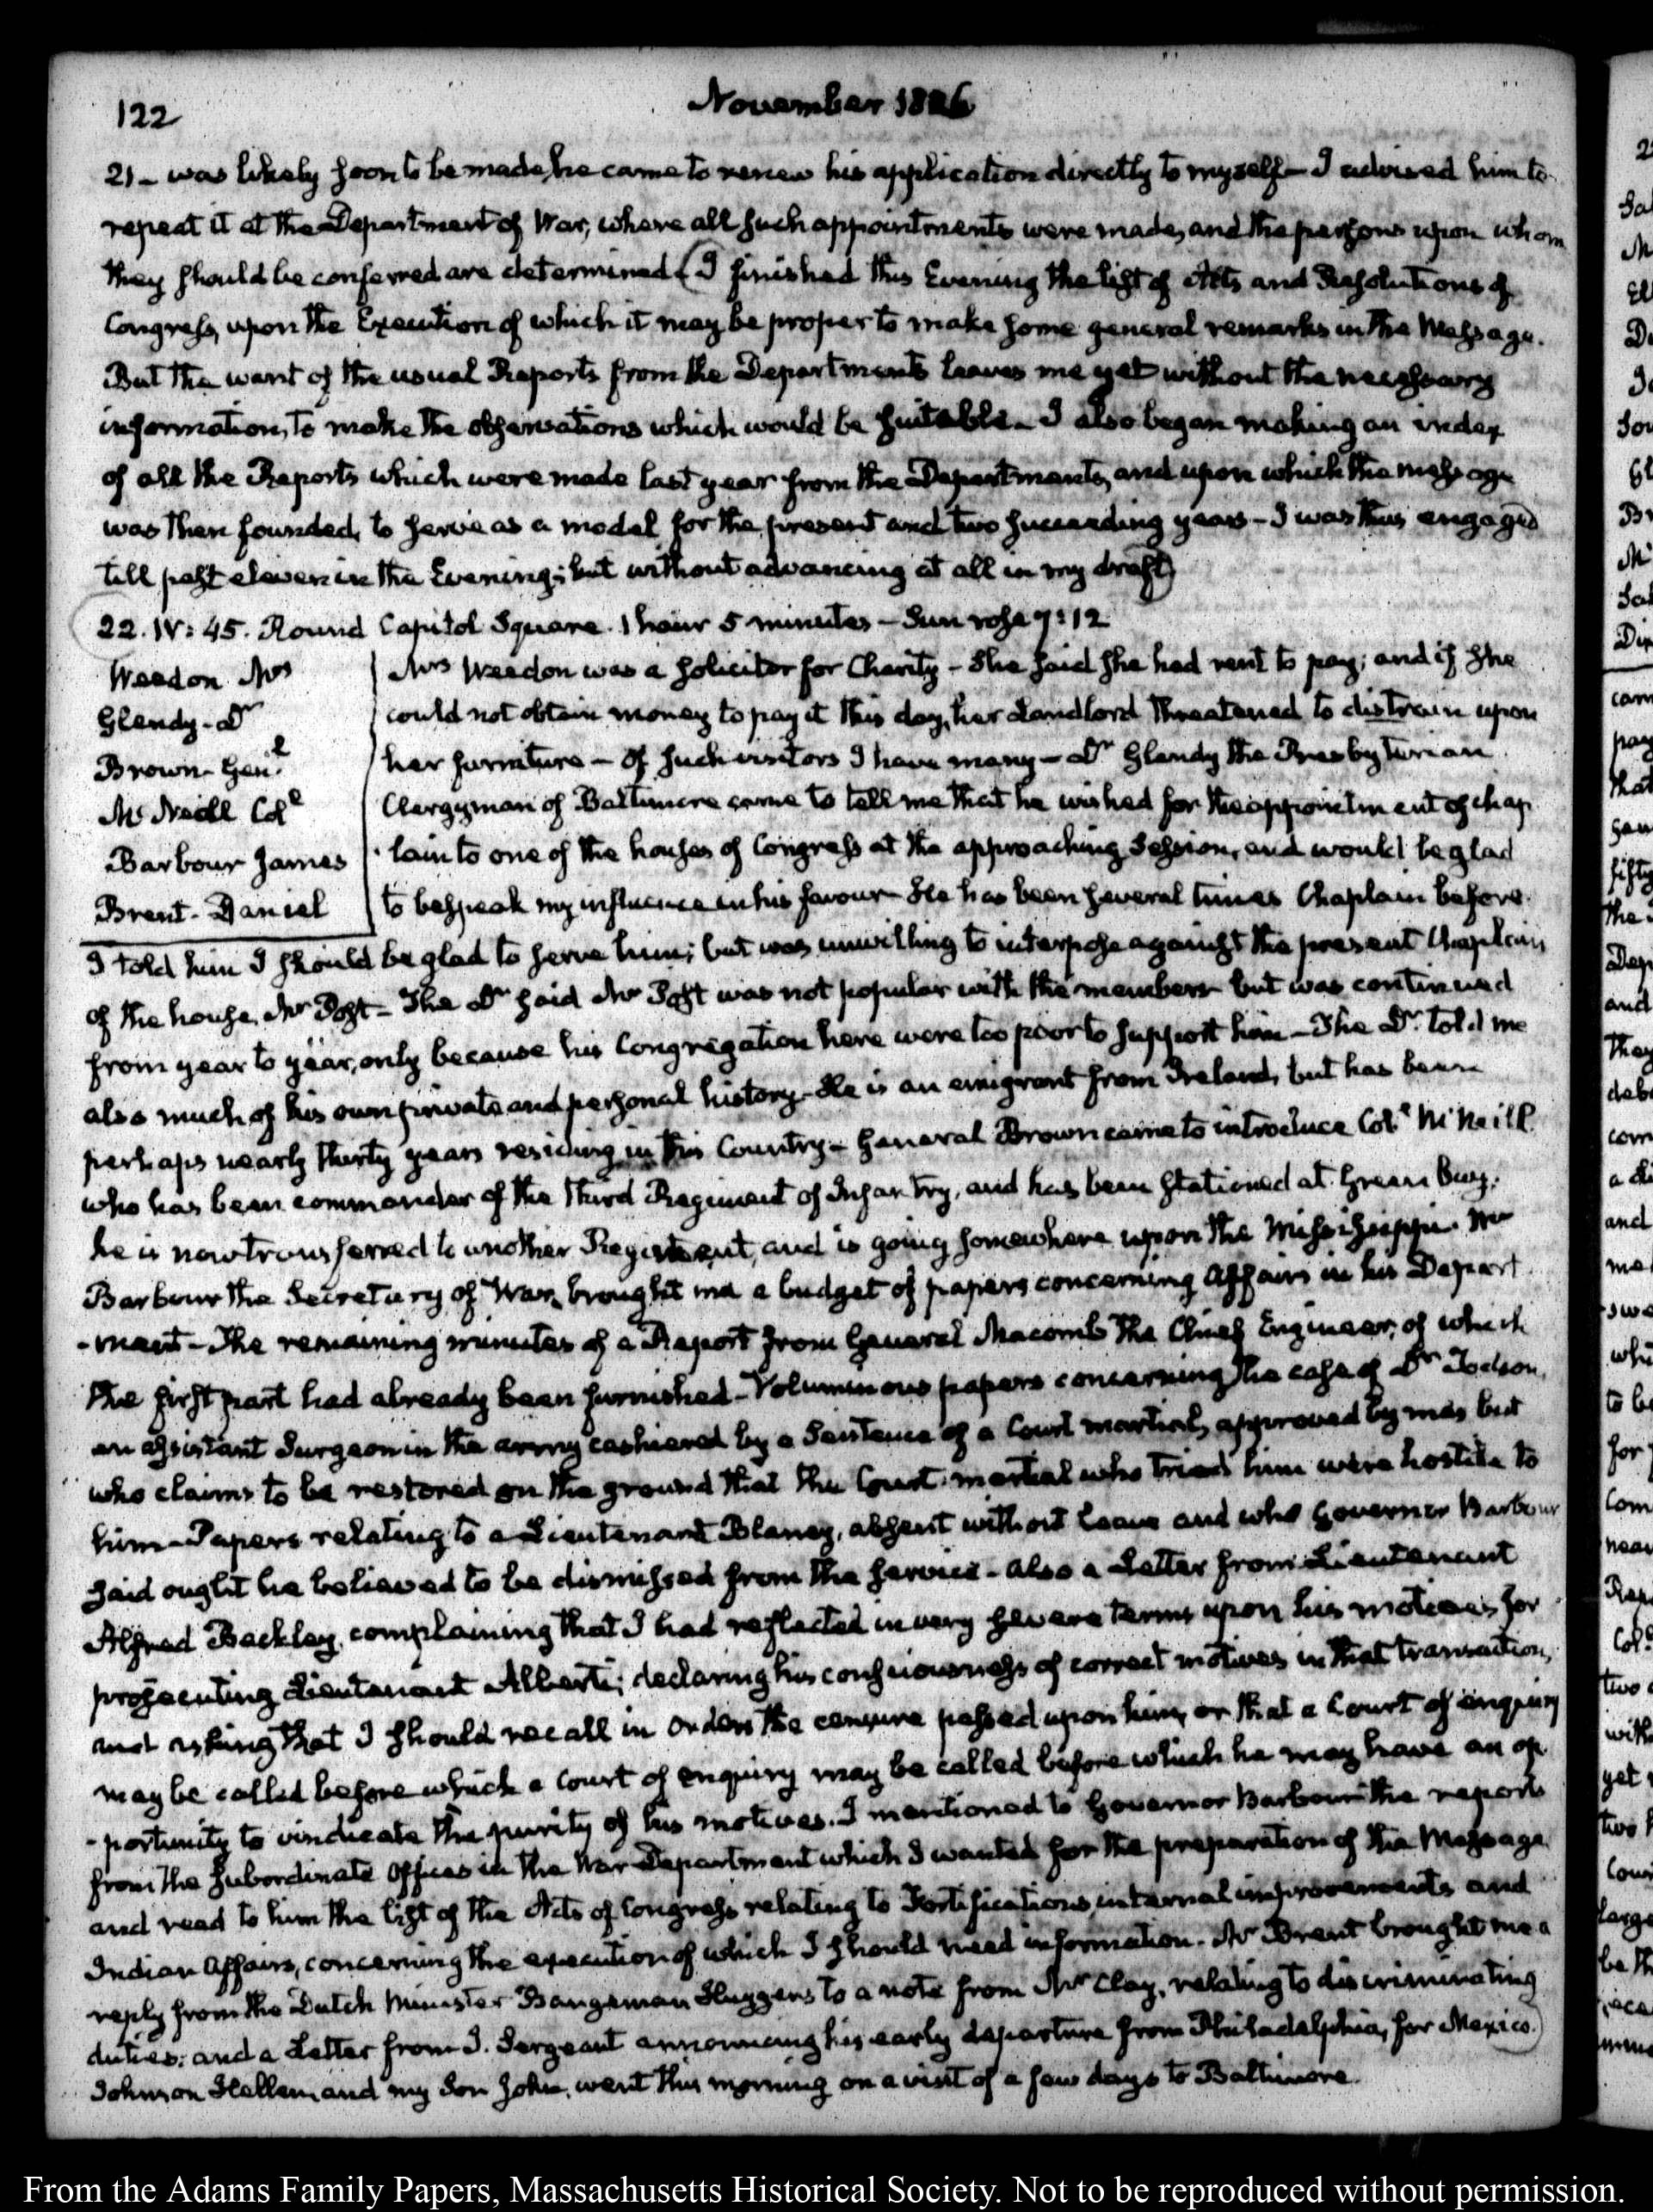 122
November 1826
21 – was likely soon to be made, he came to renew his application directly to myself – I advised him to
repeat it at the Department of War, where all such appointments were made, and the persons upon whom
they should be conferred are determined. (I finished this Evening the list of Acts and Resolutions of
Congress, upon the Execution of which it may be proper to make some general remarks in the Message.
But the want of the usual Reports from the Departments leaves me yet without the necessary
information, to make the observations which would be suitable. I also began making an index
of all the Reports which were made last year from the Departments, and upon which the message
was then founded, to serve as a model for the present and two succeeding years – I was thus engaged
till past eleven in the Evening; but without advancing at all in my draft)
22. IV: 45. Round Capitol Square. 1 hour 5 minutes – Sun rose 7:12
Weedon Mrs
Glendy – Dr
Brown – Genl
McNeill Coll
Barbour James
Brent – Daniel
Mrs Weedon was a solicitor for Charity – She said she had rent to pay; and if she
could not obtain money to pay it this day, her Landlord threatened to distrain upon
her furniture – Of such visitors I have many – Dr Glendy the Presbyterian
Clergyman of Baltimore came to tell me that he wished for the appointment of chap
lain to one of the houses of Congress at the approaching Session, and would be glad
to bespeak my influence in his favour – He has been several times Chaplain before.
I told him I should be glad to serve him; but was unwilling to interpose against the present Chaplain
of the house, Mr Post – The Dr said Mr Post was not popular with the members but was continued
from year to year, only because his Congregation here were too poor to support him – The Dr. told me
also much of his own private and personal history – He is an emigrant from Ireland, but has been
perhaps nearly thirty years residing in this Country – General Brown came to introduce Coll McNeill.
who has been commander of the third Regiment of Infantry, and has been stationed at Green Bay.
he is now transferred to another Regiment, and is going somewhere upon the Mississippi. Mr
Barbour the Secretary of War, brought me a budget of papers concerning Affairs in his Depart
-ment – The remaining minutes of a Report from General Macomb the Chief Engineer, of which
the first part had already been furnished – Voluminous papers concerning the case of Dr Todson,
an assistant Surgeon in the army cashiered by a Sentence of a Court martial, approved by me, but
who claims to be restored on the ground that the Court-martial who tried him were hostile to
him – Papers relating to a Lieutenant Blaney, absent without leave and who Governor Barbour
said ought he believed to be dismissed from the service – also a Letter from Lieutenant
Alfred Beckley, complaining that I had reflected in very severe terms upon his motives for
prosecuting Lieutenant Alberti; declaring his consciousness of correct motives in that transaction,
and asking that I should recall in orders the censure passed upon him, or that a Court of enquiry
may be called before which a Court of enquiry may be called before which he may have an op
-portunity to vindicate the purity of his motives. I mentioned to Governor Barbour the reports
from the subordinate Offices in the War Department which I wanted for the preparation of the Message
and read to him the list of the Acts of Congress relating to Fortifications, internal improvements and
Indian Affairs, concerning the execution of which I should need information. Mr Brent brought me a
reply from the Dutch Minister Bangeman Huygens to a note from Mr Clay, relating to discriminating
duties; and a Letter from J. Sergeant announcing his early departure from Philadelphia, for Mexico.)
Johnson Hellen, and my Son John, went this morning on a visit of a few days to Baltimore.
From the Adams Family Papers, Massachusetts Historical Society. Not to be reproduced without permission.